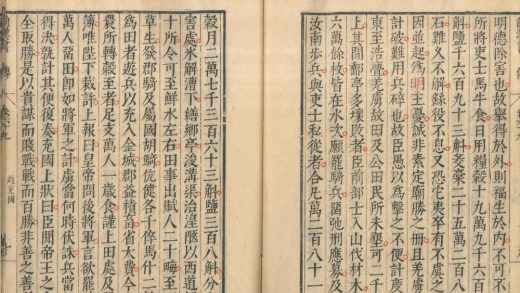 明德除害也故舉得於外則福生於内不可不
所將吏士馬牛食月用糧穀十九萬九千六百
斛鹽千六百九十三斛茭藁二十五萬二百八
石難久不解繇役不息又恐它夷卒有不虞之
因並起爲明主憂誠非素定廟勝之冊且羌虜
計破難用兵碎也故臣愚以爲擊之不便計度
東至浩亹羌虜故田及公田民所未墾可二千
上其間郵亭多壞敗者臣前部士入山伐材木
六萬餘枚皆在水次願罷騎兵留弛刑應募及
汝南步兵與吏士私從者合凡萬二百八十一
穀月二萬七千三百六十三斛鹽三百八斛分
害處冰解漕下繕鄉亭浚溝渠治湟陿以西道
十所令可至鮮水左右田事出賦人二十畮至
草生發郡騎及屬國胡騎伉健各千倅馬什二
爲田者遊兵以充入金城郡益積畜省大費今
農所轉穀至者足支萬人一歲食謹上田處及
簿唯陛下裁許上報曰皇帝問後將軍言欲罷
萬人留田即如將軍之計虜當何時伏誅兵當
得決孰計其便復奏充國上狀曰臣聞帝王之
全取勝是以貴謀而賤戰戰而百勝非善之善
趙充國